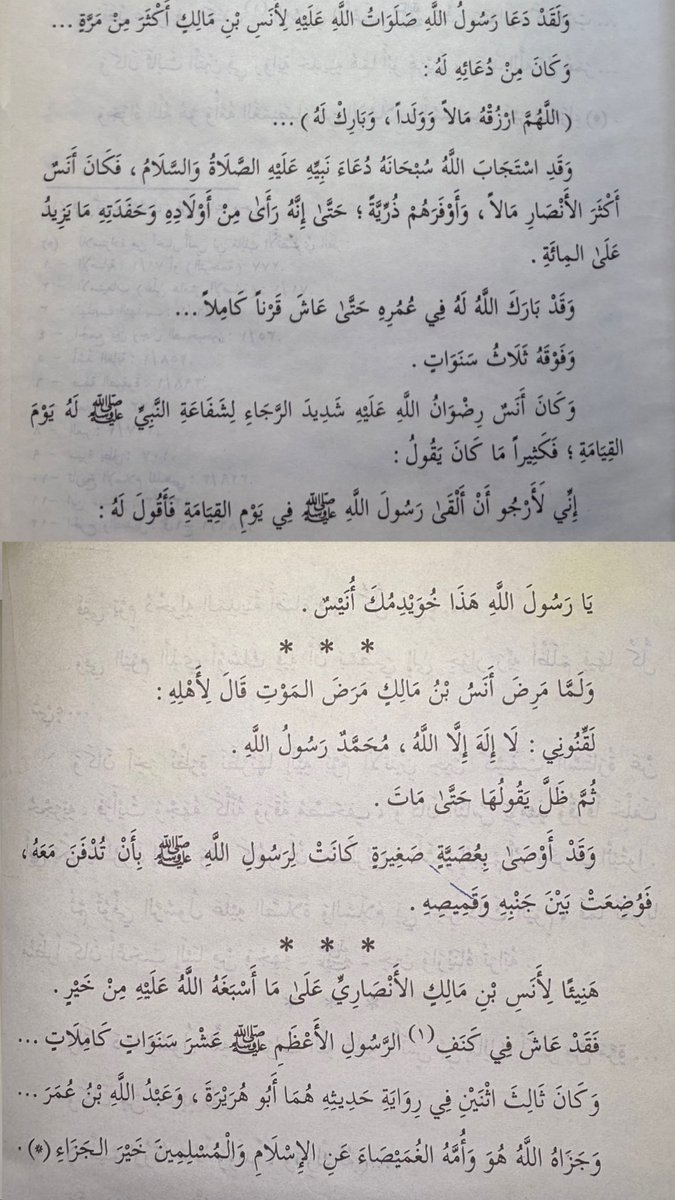 وَلَقَدْ دَعَا رَسُولُ اللَّهِ صَلَوَاتُ اللَّهِ عَلَيْهِ لِأَنَسِ بْنِ مَالِكٍ أَكْثَرَ مِنْ مَرَّةٍ ...
وَكَانَ مِنْ دُعَائِهِ لَهُ :
( اللَّهُمَّ ارْزُقْهُ مَالاً وَوَلَداً ، وَبَارِكْ لَهُ ) ...
وَقَدِ اسْتَجَابَ اللَّهُ سُبْحَانَهُ دُعَاءَ نَبِيِّهِ عَلَيْهِ الصَّلَاةُ وَالسَّلَامُ ، فَكَانَ أَنَسٌ
أَكْثَرَ الْأَنْصَارِ مَالاً ، وَأَوْفَرَهُمْ ذُرِّيَّةً ؛ حَتَّىٰ إِنَّهُ رَأَىٰ مِنْ أَوْلَادِهِ وَحَفَدَتِهِ مَا يَزِيدُ
عَلَىٰ المِائَةِ .
وَقَدْ بَارَكَ اللَّهُ لَهُ فِي عُمُرِهِ حَتَّىٰ عَاشَ قَرْناً كَامِلاً ...
وَفَوْقَهُ ثَلَاثُ سَنَوَاتٍ .
وَكَانَ أَنَسٌ رِضْوَانُ اللَّهِ عَلَيْهِ شَدِيدَ الرَّجَاءِ لِشَفَاعَةِ النَّبِيِّ ﷺ لَهُ يَوْمَ
القِيَامَةِ ؛ فَكَثِيراً مَا كَانَ يَقُولُ :
إِنِّي لَأَرْجُو أَنْ أَلْقَىٰ رَسُولَ اللَّهِ ﷺ فِي يَوْمِ القِيَامَةِ فَأَقُولَ لَهُ :
يَا رَسُولَ اللَّهِ هَذَا خُوَيْدِمُكَ أُنَيْسٌ .
* * *
وَلَمَّا مَرِضَ أَنَسُ بْنُ مَالِكٍ مَرَضَ المَوْتِ قَالَ لِأَهْلِهِ :
لَقِّنُونِي : لَا إِلَهَ إِلَّا اللَّهُ ، مُحَمَّدٌ رَسُولُ اللَّهِ .
ثُمَّ ظَلَّ يَقُولُهَا حَتَّىٰ مَاتَ .
وَقَدْ أَوْصَىٰ بِعُصَيَّةٍ صَغِيرَةٍ كَانَتْ لِرَسُولِ اللَّهِ ﷺ بِأَنْ تُدْفَنَ مَعَهُ ،
فَوُضِعَتْ بَيْنَ جَنْبِهِ وَقَمِيصِهِ .
* * *
هَنِيئًا لِأَنَسِ بْنِ مَالِكٍ الْأَنْصَارِيِّ عَلَىٰ مَا أَسْبَغَهُ اللَّهُ عَلَيْهِ مِنْ خَيْرٍ .
فَقَدْ عَاشَ فِي كَنَفِ (١) الرَّسُولِ الأَعْظَمِ ﷺ عَشْرَ سَنَوَاتٍ كَامِلَاتٍ ...
وَكَانَ ثَالِثَ اثْنَيْنِ فِي رِوَايَةِ حَدِيثِهِ هُمَا أَبُو هُرَيْرَةَ ، وَعَبْدُ اللَّهِ بْنُ عُمَرَ ...
وَجَزَاهُ اللَّهُ هُوَ وَأُمَّهُ الغُمَيْصَاءَ عَنِ الإِسْلَامِ وَالْمُسْلِمِينَ خَيْرَ الجَزَاءِ (*) .